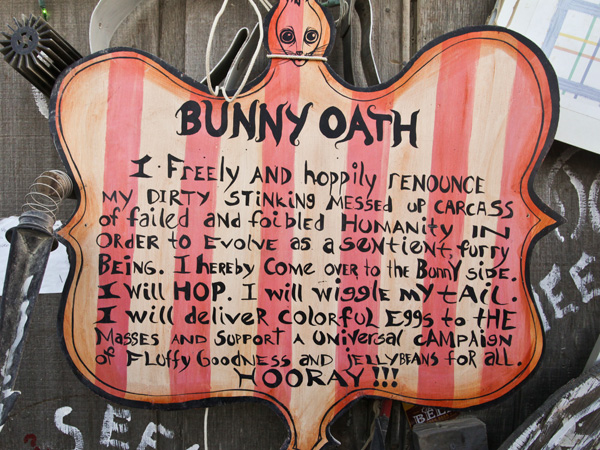 BUNNY OATH
I FREELY AND hoppily RENOUNCE
MY DIRTY STINKING MESSED UP CARCASS
of failed and foibled HUMANITY IN
ORDER to EVOLVE as a sentient, furry
BEING. I hereby COME OVER to the BUNNY SIDE.
I will HOP. I will wiggle my tail.
I will deliver colorful Eggs to tHE
MASSES AND SUPPORT A UNIVERSAL CAMPAIGN
of FLUFFY GOODNESS AND JELLYBEANS FOR ALL.
HOORAY!!!
SEE